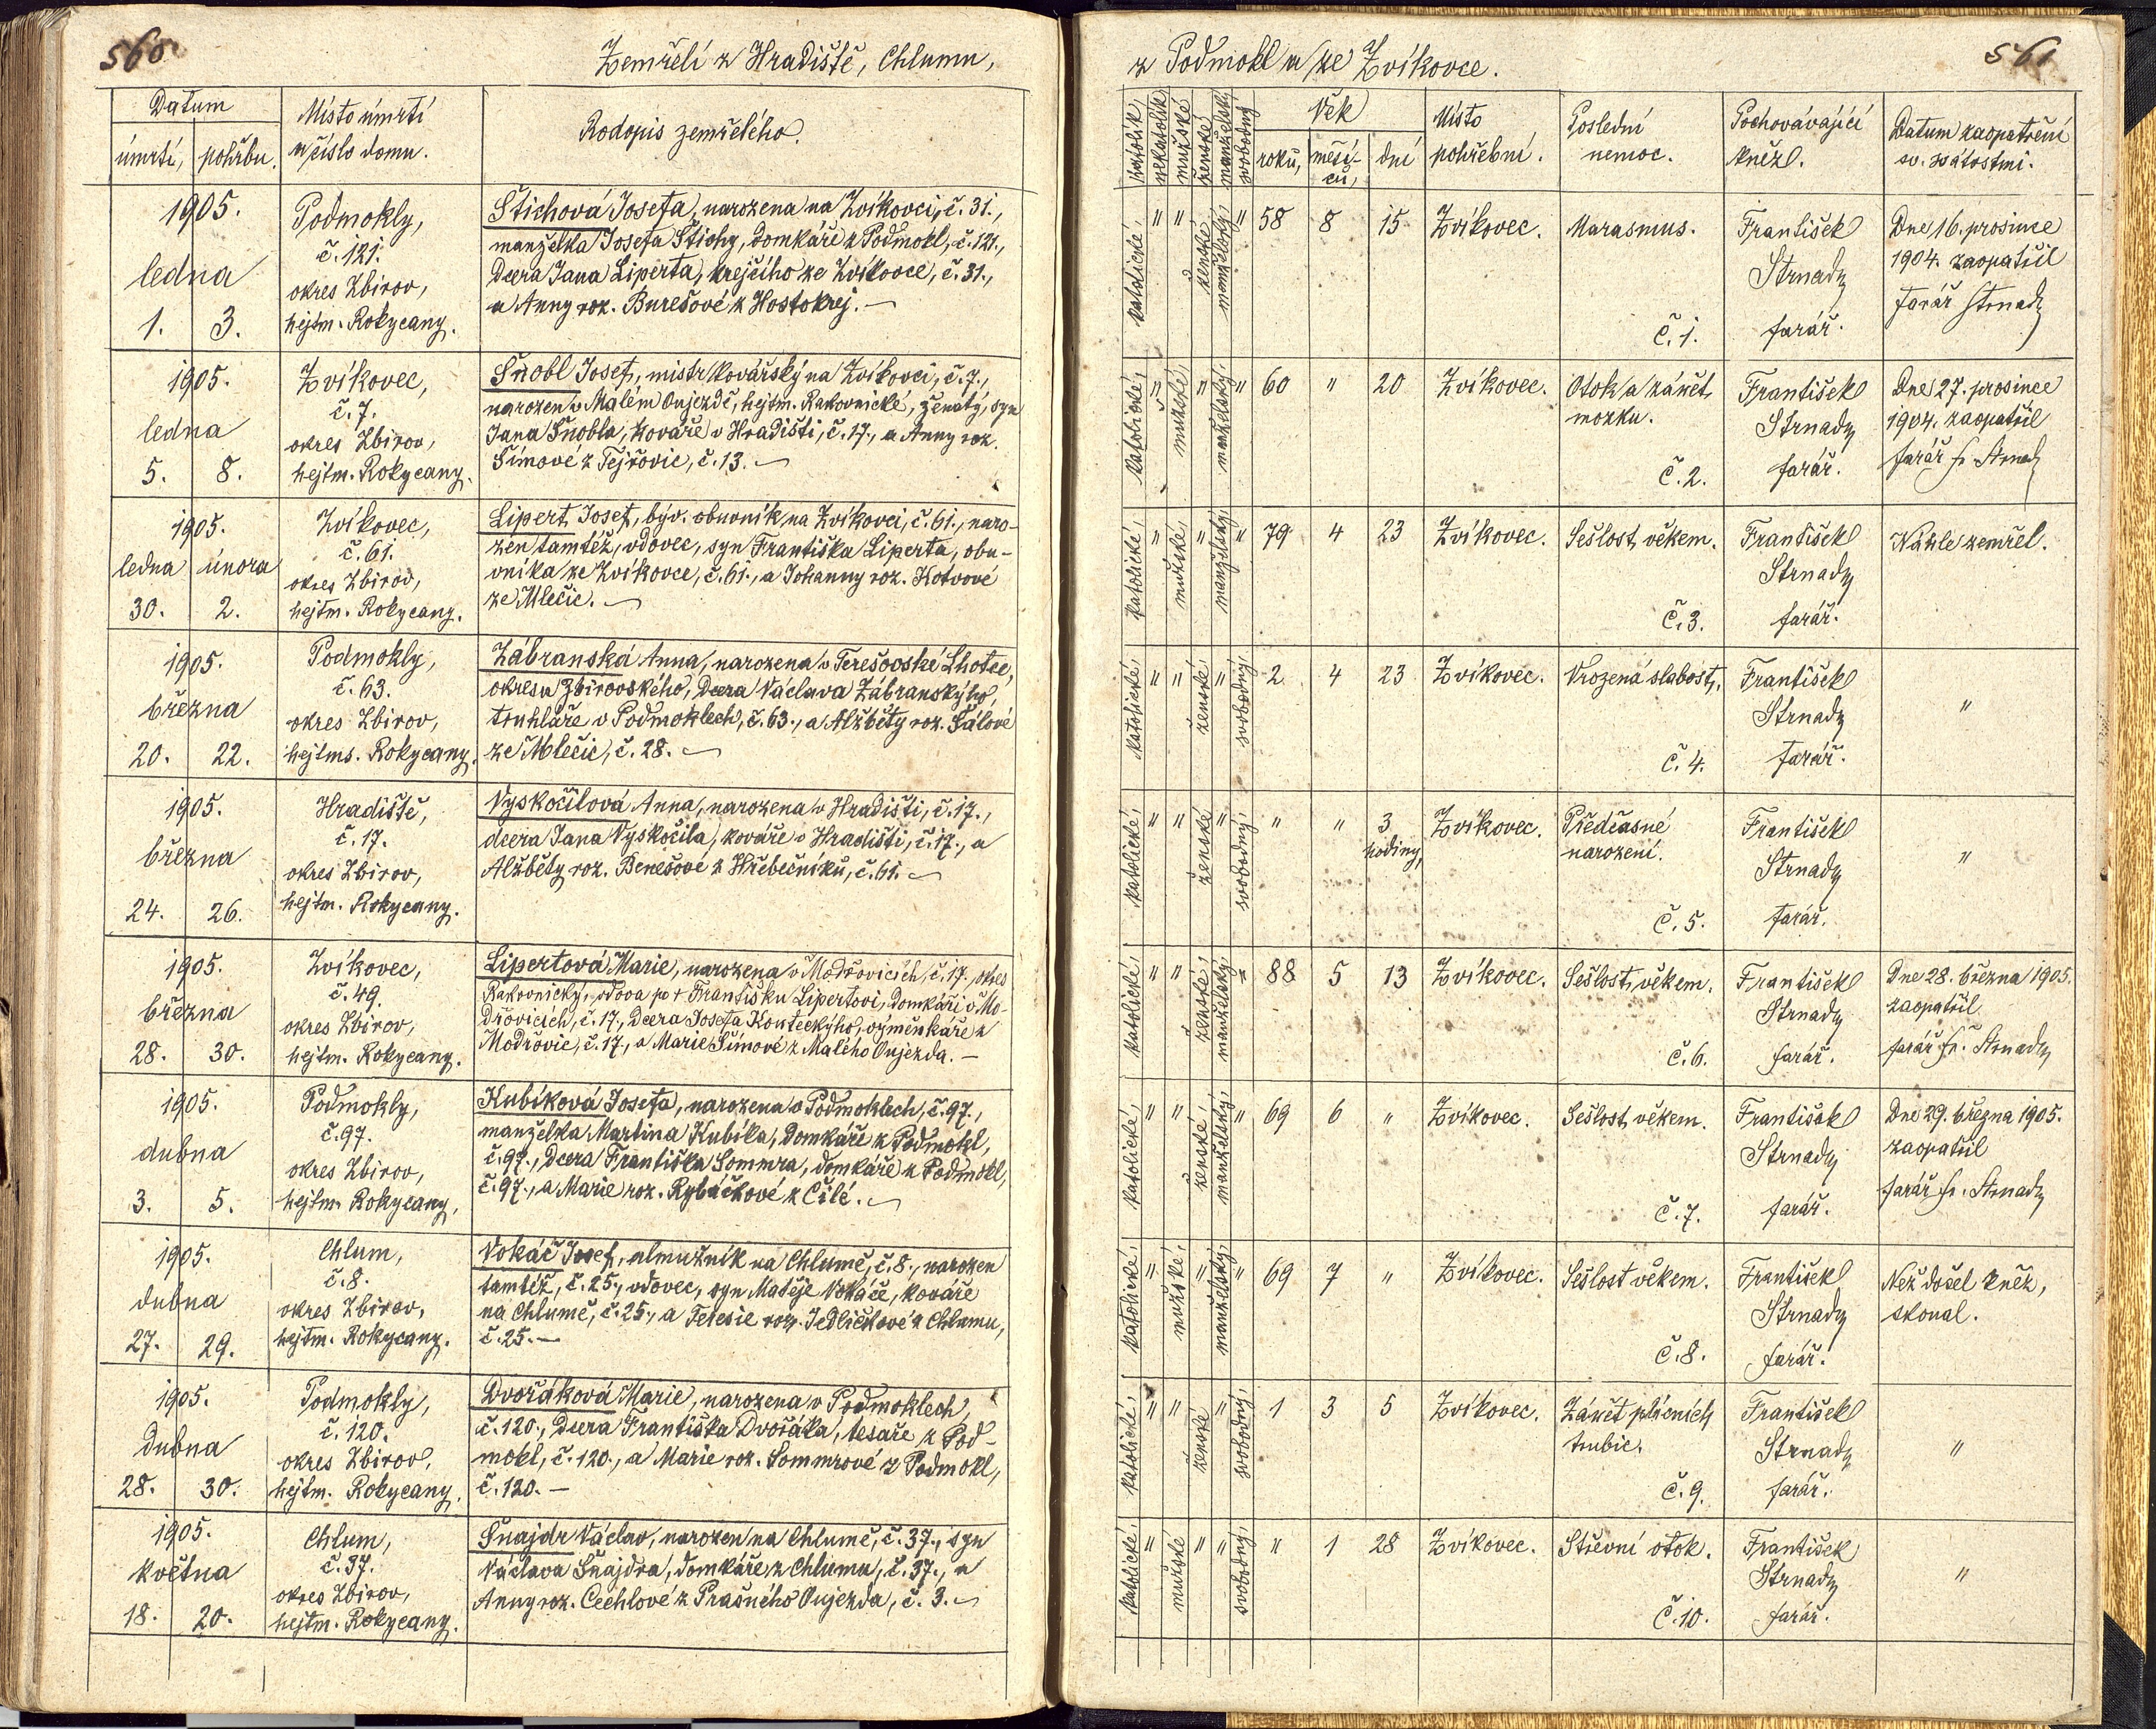 560.
Zemřelí z Hradiště, Chlumu,
Datum
úmrtí, pohřbu.
Místo úmrtí
a číslo domu.
Rodopis zemřelého.
1905.
ledna
1. 3.
Podmokly,
č. 121.
okres Zbirov,
hejtm. Rokycany.
Štichová Josefa, narozena na Zvíkovci, č. 31.,
manželka Josefa Štichy, domkáře z Podmokl, č. 121.,
dcera Jana Liperta, krejčího ze Zvíkovce, č. 31.,
a Anny roz. Burešové z Hostokrej. —
1905.
ledna
5. 8.
Zvíkovec,
č. 7.
okres Zbirov,
hejtm. Rokycany.
Šnobl Josef, mistr kovářský na Zvíkovci, č. 7.,
narozen v Malém Oujezdě, hejtm. Rakovnické, ženatý, syn
Jana Šnobla, kováře v Hradišti, č. 17., a Anny roz.
Šímové z Tejřovic, č. 13. —
1905.
ledna února
30. 2.
Zvíkovec,
č. 61.
okres Zbirov,
hejtm. Rokycany.
Lipert Josef, býv. obuvník na Zvíkovci, č. 61., naro-
zen tamtéž, vdovec, syn Františka Liperta, obu-
vníka ze Zvíkovce, č. 61., a Johanny roz. Kotvové
ze Mlečic. —
1905.
března
20. 22.
Podmokly,
č. 63.
okres Zbirov,
hejtms. Rokycany.
Zábranská Anna, narozena v Terešovské Lhotce,
okresu Zbirovského, dcera Václava Zábranskýho,
truhláře v Podmoklech, č. 63., a Alžběty roz. Šálové
ze Mlečic, č. 28. —
1905.
března
24. 26.
Hradiště,
č. 17.
okres Zbirov,
hejtm. Rokycany.
Vyskočilová Anna, narozena v Hradišti, č. 17.,
dcera Jana Vyskočila, kováře v Hradišti, č. 17., a
Alžběty roz. Benešové z Hřebečníků, č. 61. —
1905.
března
28. 30.
Zvíkovec,
č. 49.
okres Zbirov,
hejtm. Rokycany.
Lipertová Marie, narozena v Modřovicích, č. 17. okres
Rakovnický, vdova po † Františku Lipertovi, domkáři v Mo-
dřovicích, č. 17., dcera Josefa Kouteckýho, výměnkáře z
Modřovic, č. 17., a Marie Šímové z Malého Oujezda. —
1905.
dubna
3. 5.
Podmokly,
č. 97.
okres Zbirov,
hejtm. Rokycany.
Kubíková Josefa, narozena v Podmoklech, č. 97.,
manželka Martina Kubíka, domkáře z Podmokl,
č. 97., dcera Františka Sommra, domkáře z Podmokl,
č. 97., a Marie roz. Rybáčkové z Čilé. —
1905.
dubna
27. 29.
Chlum,
č. 8.
okres Zbirov,
hejtm. Rokycany.
Vokáč Josef, almužník na Chlumě, č. 8., narozen
tamtéž, č. 25., vdovec, syn Matěje Vokáče, kováře
na Chlumě, č. 25., a Teresie roz. Jedličkové z Chlumu,
č. 25. —
1905.
dubna
28. 30.
Podmokly,
č. 120.
okres Zbirov,
hejtm. Rokycany.
Dvořáková Marie, narozena v Podmoklech,
č. 120., dcera Františka Dvořáka, tesaře z Pod-
mokl, č. 120., a Marie roz. Sommrové z Podmokl,
č. 120. —
1905.
května
18. 20.
Chlum,
č. 37.
okres Zbirov,
hejtm. Rokycany.
Šnajdr Václav, narozen na Chlumě, č. 37., syn
Václava Šnajdra, domkáře z Chlumu, č. 37., a
Anny roz. Cechlové z Prašného Oujezda, č. 3. —
z Podmokl a ze Zvíkovce.
561
katolík, nekatolík mužské ženské manželský, svobodný
Věk
roků, měsí-
ců, dní
Místo
pohřební.
Poslední
nemoc.
Pochovávající
kněz.
Datum zaopatření
sv. svátostmi.
katolické, " " ženské, manželský, " 58 8 15 Zvíkovec. Marasmus.
č. 1.
František
Strnady
farář.
Dne 16. prosince
1904. zaopatřil
farář Strnady
katolické, " mužské, " manželský, " 60 " 20 Zvíkovec. Otok a zánět
mozku.
č. 2.
František
Strnady
farář.
Dne 27. prosince
1904. zaopatřil
farář Fr. Strnady
katolické, " mužské, " manželský, " 79 4 23 Zvíkovec. Sešlost věkem.
č. 3.
František
Strnady
farář.
Náhle zemřel.
katolické, " " ženské, " svobodný, 2 4 23 Zvíkovec. Vrozená slabost.
č. 4.
František
Strnady
farář.
"
katolické, " " ženské " svobodný, " " 3
hodiny,
Zvíkovec. Předčasné
narození.
č. 5.
František
Strnady
farář.
"
katolické, " " ženské, manželský, " 88 5 13 Zvíkovec. Sešlost věkem.
č. 6.
František
Strnady
farář.
Dne 28. března 1905.
zaopatřil
farář Fr. Strnady
katolické, " " ženské, manželský, " 69 6 " Zvíkovec. Sešlost věkem.
č. 7.
František
Strnady
farář.
Dne 29. března 1905.
zaopatřil
farář Fr. Strnady
katolické, " mužské, " manželský, " 69 7 " Zvíkovec. Sešlost věkem.
č. 8.
František
Strnady
farář.
Než došel kněz,
skonal.
katolické, " " ženské " svobodný, 1 3 5 Zvíkovec. Zánět plicních
trubic.
č. 9.
František
Strnady
farář.
"
katolické, " mužské " " svobodný, " 1 28 Zvíkovec. Střevní otok.
č. 10.
František
Strnady
farář.
"